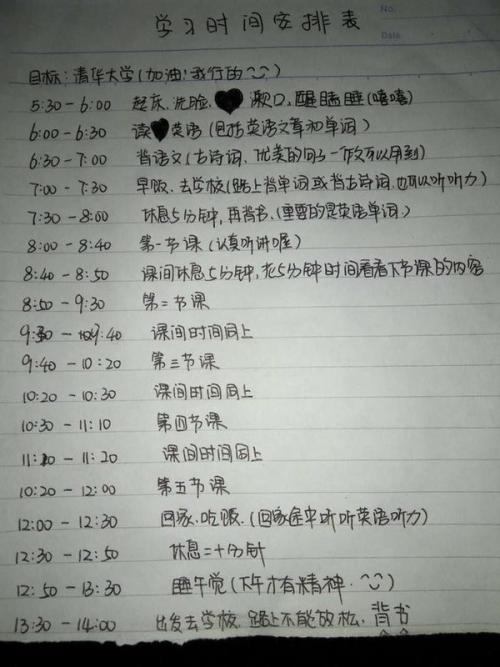 No.
Date.
学习时间安排表
目标:清华大学(加油!我行的)
5:30-6:00 起床.洗脸. 漱口,醒瞌睡(嘻嘻)
6:00-6:30 读英语(包括英语文章和单词)
6:30-7:00 背语文(古诗词.优美的句子一作文可以用到)
7:00-7:30 早饭.去学校(路上背单词或背古诗词.也可以听听力)
7:30-8:00 休息5分钟,再背书.(重要的是英语单词.)
8:00-8:40 第一节课(认真听讲喔)
8:40-8:50 课间休息5分钟,花5分钟时间看看下节课的内容
8:50-9:30 第二节课
9:30-9:40 课间时间同上
9:40-10:20 第三节课
10:20-10:30 课间时间同上
10:30-11:10 第四节课
11:10-11:20 课间时间同上
10:20-12:00 第五节课
12:00-12:30 回家.吃饭.(回家途中听听英语听力)
12:30-12:50 休息二十分钟
12:50-13:30 睡午觉(下午才有精神.)
13:30-14:00 出发去学校.路上不能放松.背书